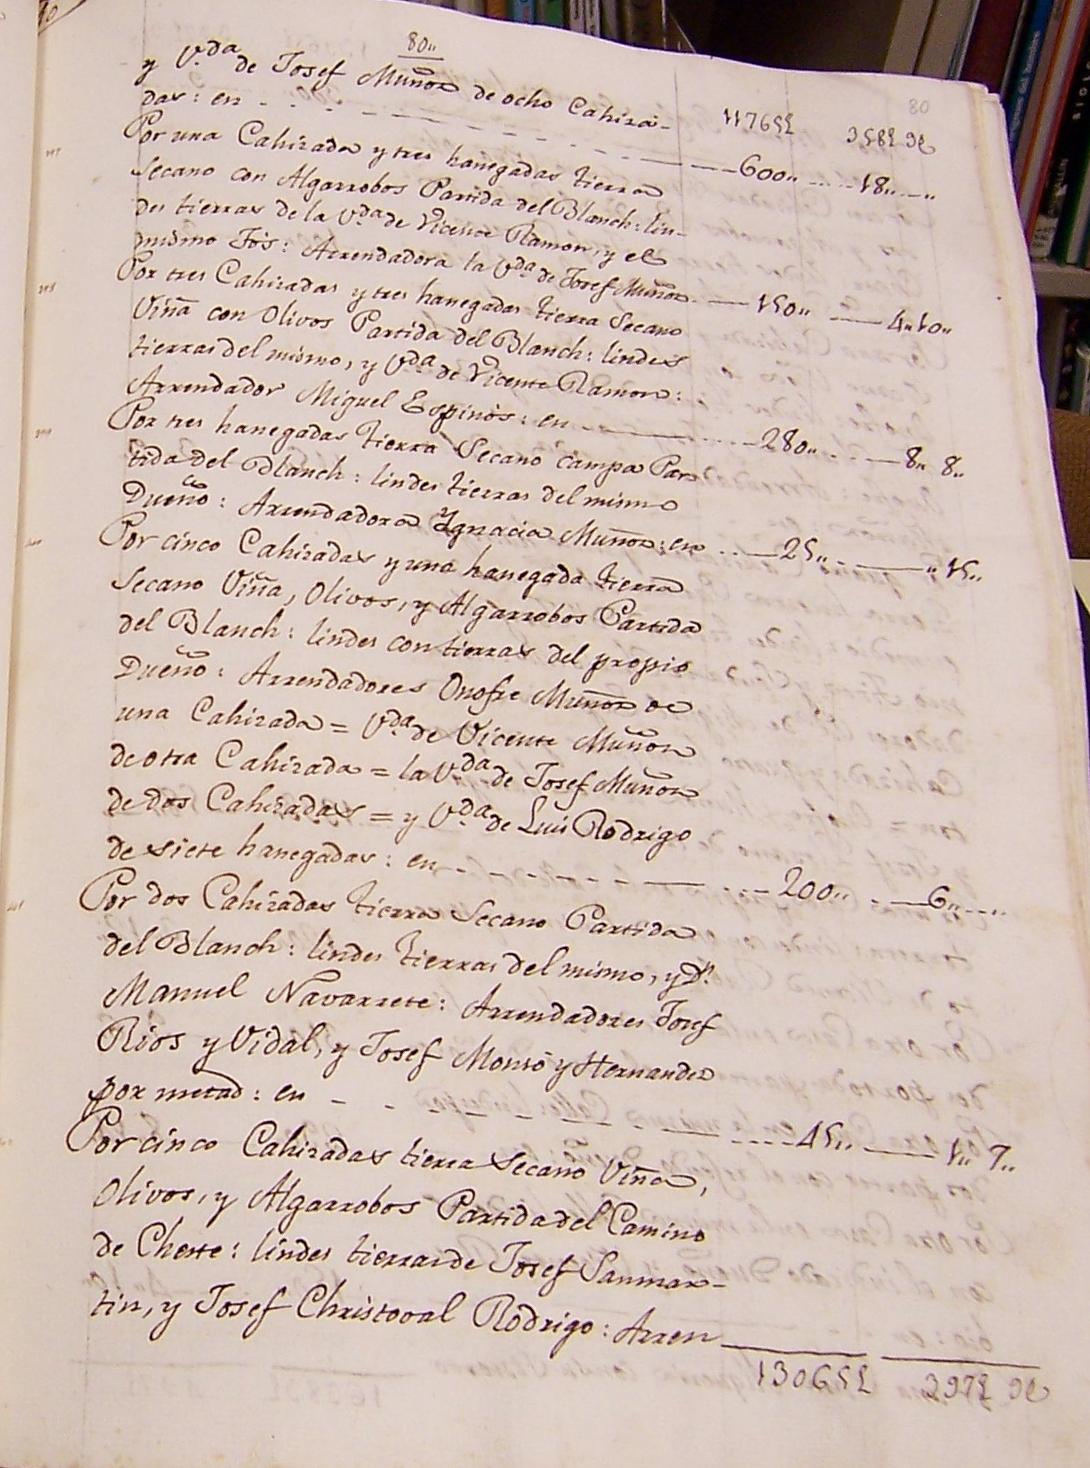 80,,
80
y V.da de Josef Muñoz de ocho Cahiza-
11765£ 358£ 9s
das: en - - - - 600,, - - 18,, - ,,
Por una Cahizada y tres hanegadas tierra
Secano con Algarrobos Partida del Blanch: lin-
des tierras de la V.da de Vicente Ramon, y el
mismo Fós: Arrendadora la V.da de Josef Muñoz - 150,, - 4,, 10,,
Por tres Cahizadas y tres hanegadas tierra Secano
Viña con Olivos Partida del Blanch: lindes
tierras del mismo, y V.da de Vicente Ramon:
Arrendador Miguel Espinós: en - - - 280,, - - 8,, 8,,
Por tres hanegadas tierra Secano campa Par-
tida del Blanch: lindes tierras del mismo
Dueño: Arrendadora Ignacia Muñoz: en - - 25,, - ,, 15,,
Por cinco Cahizadas y una hanegada tierra
Secano Viña, Olivos, y Algarrobos Partida
del Blanch: lindes con tierras del propio
Dueño: Arrendadores Onofre Muñoz de
una Cahizada = V.da de Vicente Muñoz
de otra Cahizada = la V.da de Josef Muñoz
de dos Cahizadas = y V.da de Luis Rodrigo
de siete hanegadas: en - - - - 200,, - 6,, - -
Por dos Cahizadas tierra Secano Partida
del Blanch: lindes tierras del mismo, y D.n
Manuel Navarrete: Arrendadores Josef
Rios y Vidal, y Josef Monsó y Hernandez
por metad: en - - - - 45,, - 1,, 7,,
Por cinco Cahizadas tierra Secano Viña,
Olivos, y Algarrobos Partida del Camino
de Cheste: lindes tierras de Josef Sanmar-
tin, y Josef Christoval Rodrigo: Arren
13065£ 397£ 9s